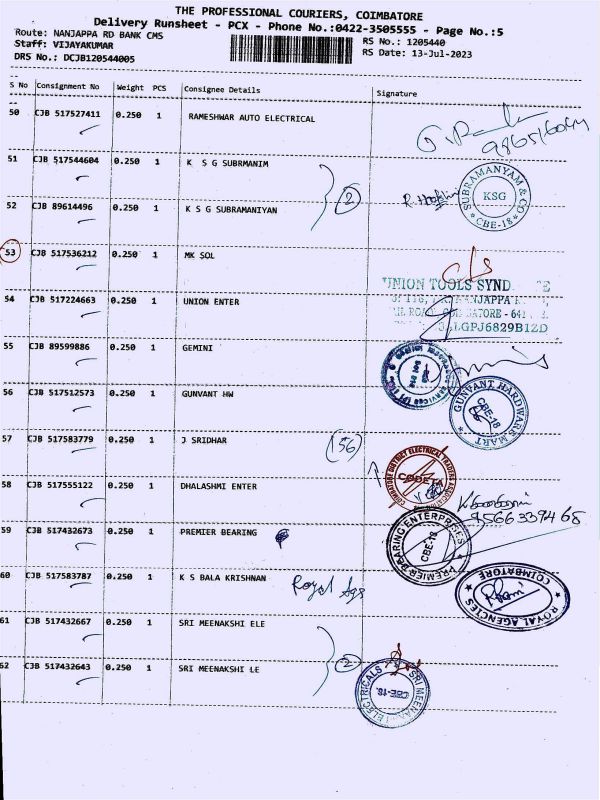 THE PROFESSIONAL COURIERS, COIMBATORE
Delivery Runsheet - PCX - Phone No.:0422-3505555 - Page No.:5
Route: NANJAPPA RD BANK CMS
Staff: VIJAYAKUMAR
DRS No.: DCJB120544005
RS No.: 1205440
RS Date: 13-Jul-2023
S No Consignment No Weight PCS Consignee Details Signature
50 CJB 517527411 0.250 1 RAMESHWAR AUTO ELECTRICAL
51 CJB 517544604 0.250 1 K S G SUBRMANIM
2
SUBRAMANYAM & CO
KSG
CBE-18
52 CJB 89614496 0.250 1 K S G SUBRAMANIYAN
53 CJB 517536212 0.250 1 MK SOL
UNION TOOLS SYND
54 CJB 517224663 0.250 1 UNION ENTER
LGPJ6829B1ZD
55 CJB 89599886 0.250 1 GEMINI
56 CJB 517512573 0.250 1 GUNVANT HW
GUNVANT HARDWARE MART
CBE-18
57 CJB 517583779 0.250 1 J SRIDHAR
(56)
COIMBATORE DISTRICT ELECTRICAL TRADERS ASSOCIATION
CODETA
58 CJB 517555122 0.250 1 DHALASHMI ENTER
9566339468
59 CJB 517432673 0.250 1 PREMIER BEARING
PREMIER BEARING ENTERPRISES
CBE-18
60 CJB 517583787 0.250 1 K S BALA KRISHNAN
Royal Ags
ROYAL AGENCIES
COIMBATORE
61 CJB 517432667 0.250 1 SRI MEENAKSHI ELE
2
62 CJB 517432643 0.250 1 SRI MEENAKSHI LE
SRI MEENAKSHI ELECTRICALS
CBE-18.